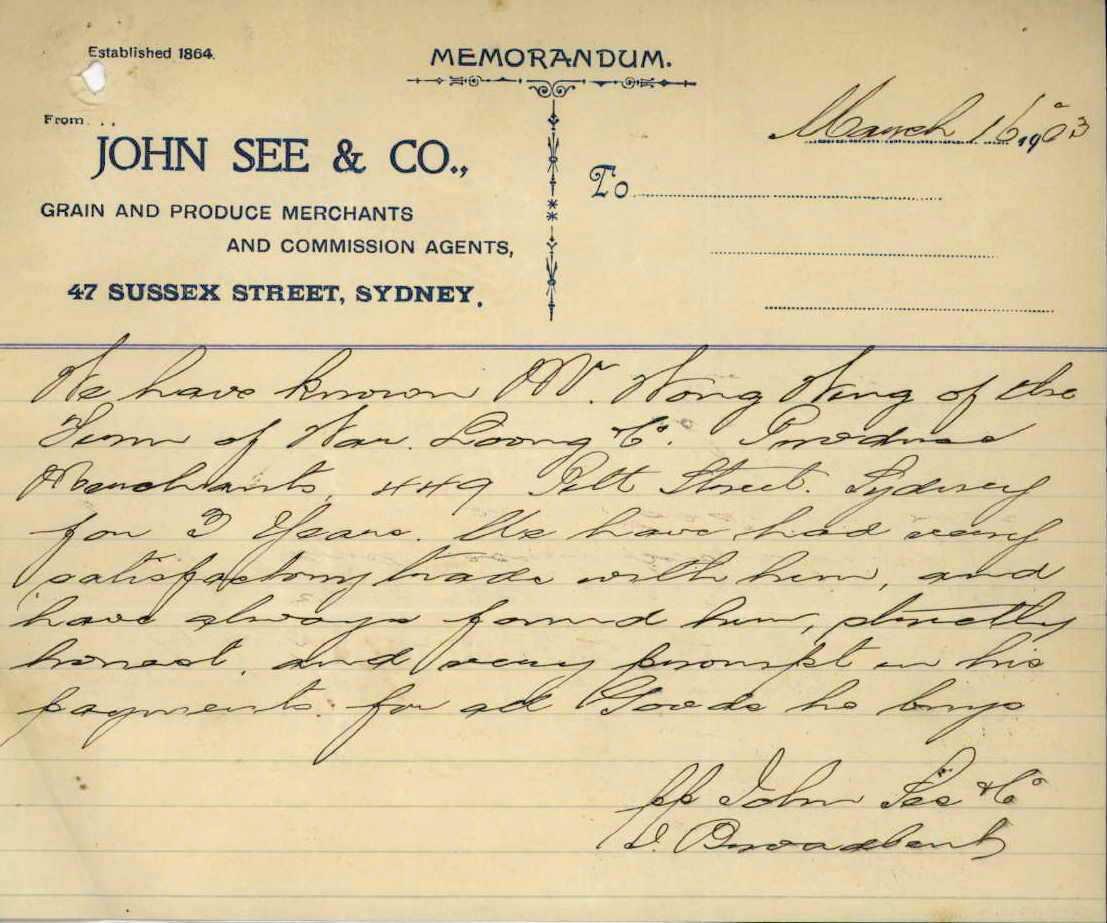 Established 1864.
MEMORANDUM.
From...
March 16 1903
JOHN SEE & CO.,
To
GRAIN AND PRODUCE MERCHANTS
AND COMMISSION AGENTS,
47 SUSSEX STREET, SYDNEY.
We have known Mr. Wong Wing of the
Firm of War Loong & Co. Produce
Merchants, 449 Pitt Street. Sydney
for 3 Years. We have had very
satisfactory trade with him, and
have always found him, strictly
honest, and very prompt in his
payments for all Goods he buys
pp John See & Co
D. Broadbent